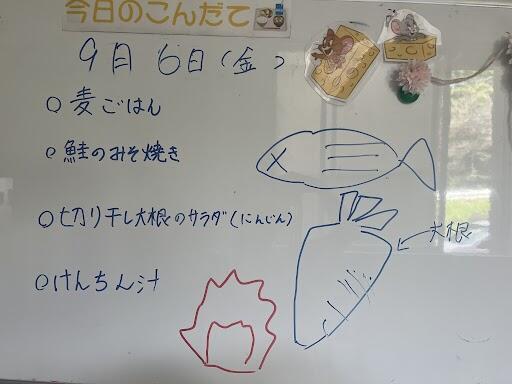 今日のこんだて
9月6日(金)
○麦ごはん
○鮭のみそ焼き
○切り干し大根のサラダ(にんじん)
大根
○けんちん汁